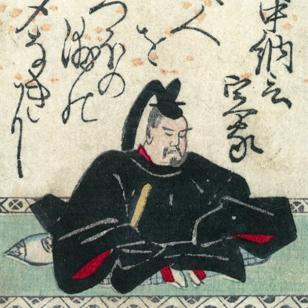 中納言
定家
人
を
つほの
浦の
夕なきに